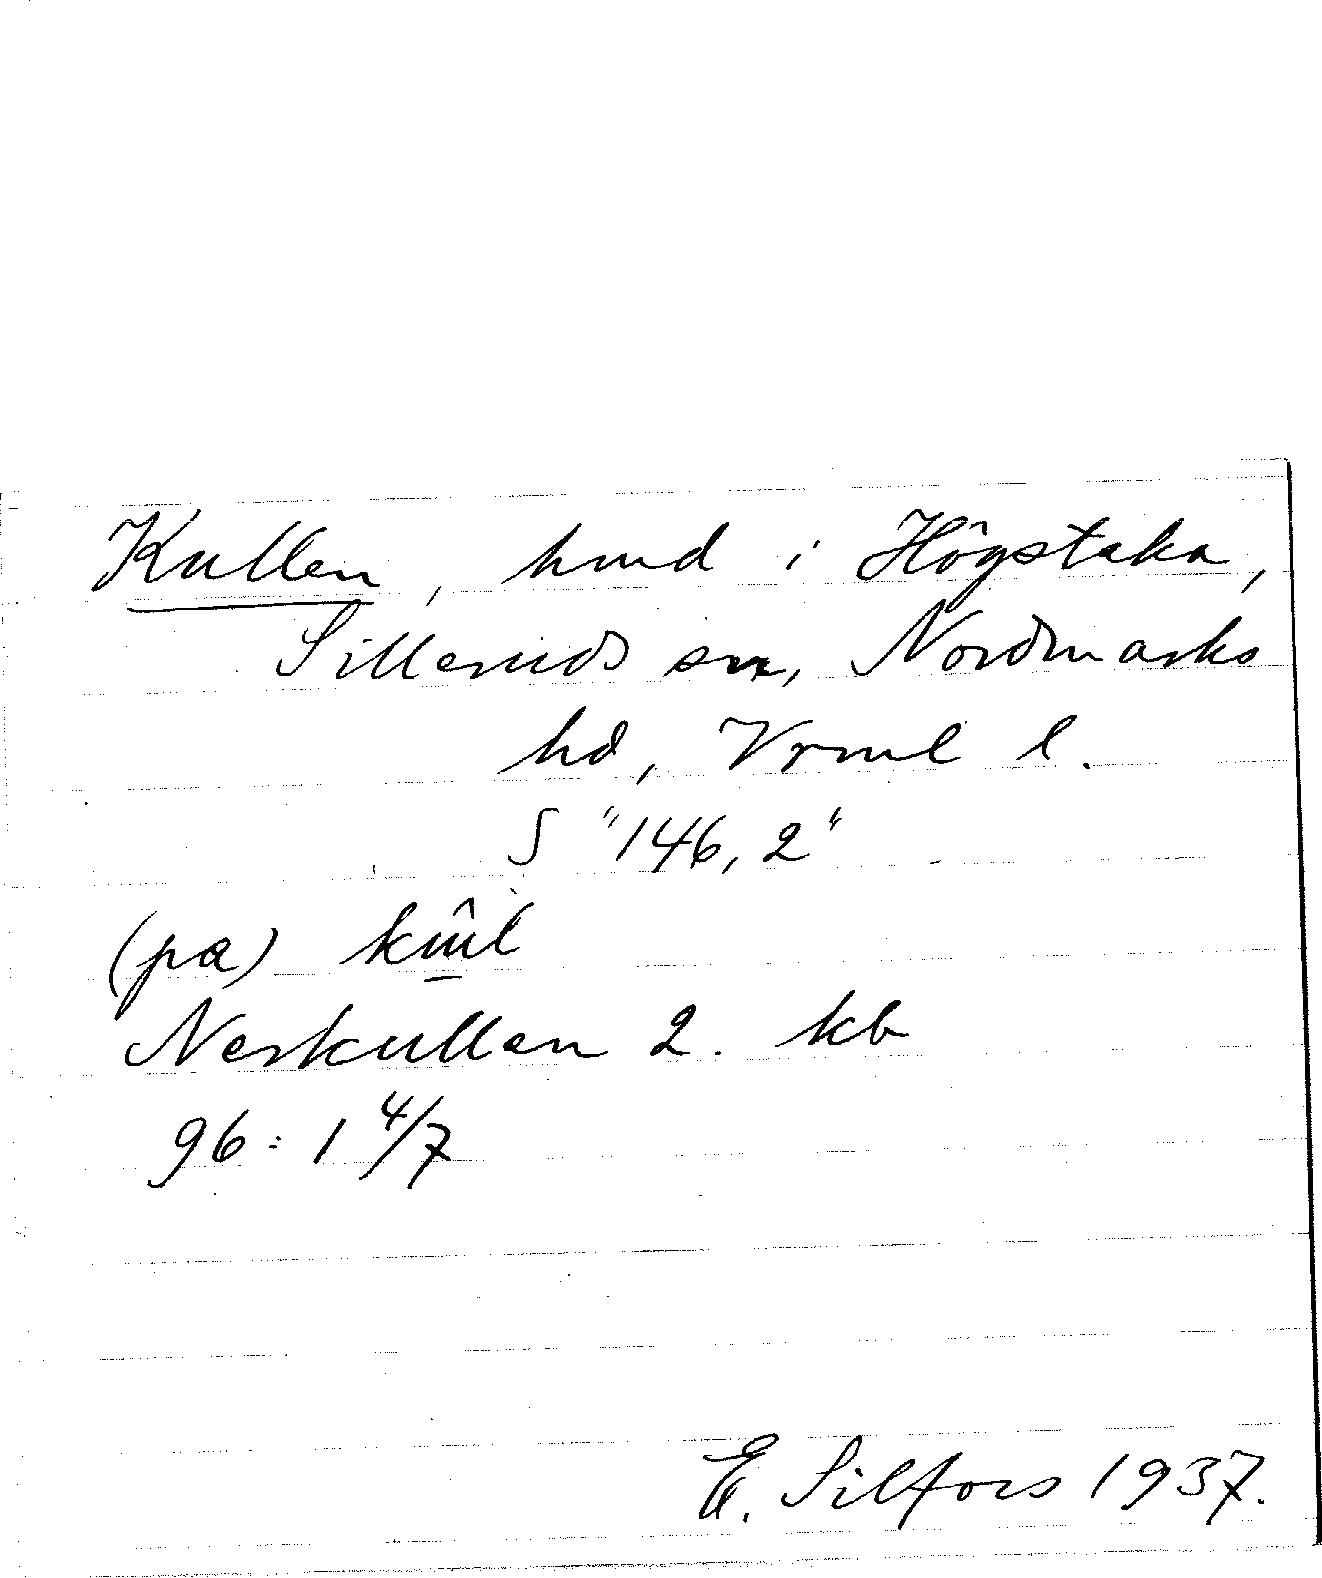 Kullen, hmd i Högstaka,
Silleruds sn, Nordmarks
hd, Vrml l.
S "146,2"
(pa)
Nerkullen 2. kb
96: 1 4/7
E. Silfors 1937.